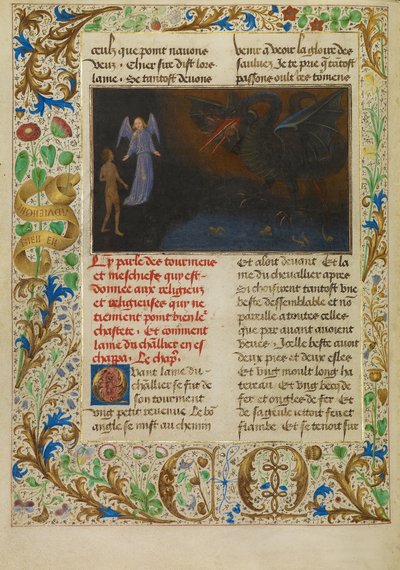 ceulx que point nauons
veuz . Chier sire dist lors
lame . Se tantost deuons
venir a veoir la gloire des
sauluez Je te prie que tātost
passons oult ces tormens
Cy parle des tourmens
et meschiefz quy est-
donnee aux religieux
et religieuses quy ne
tiennent point bien le²
chastete . Et comment
lame du ch̄llier en es
chapa . Le chap̄.
Quant lame du
ch̄llier se fut de
son tourment
vng petit reuenue Le bō
angle se mist au chemin
Et aloit deuant Et la
me du cheuallier apres
Si choisirent tantost vne
beste dessemblable et nō
pareille a toutes celles
que par auant auoient
veues . Icelle beste auoit
deux pies et deux esles
Et vng moult long ha
tereau Et vng becq de
fer et ongles de fer Et
de sa geule issoit feu et
flambe Et se tenoit sur